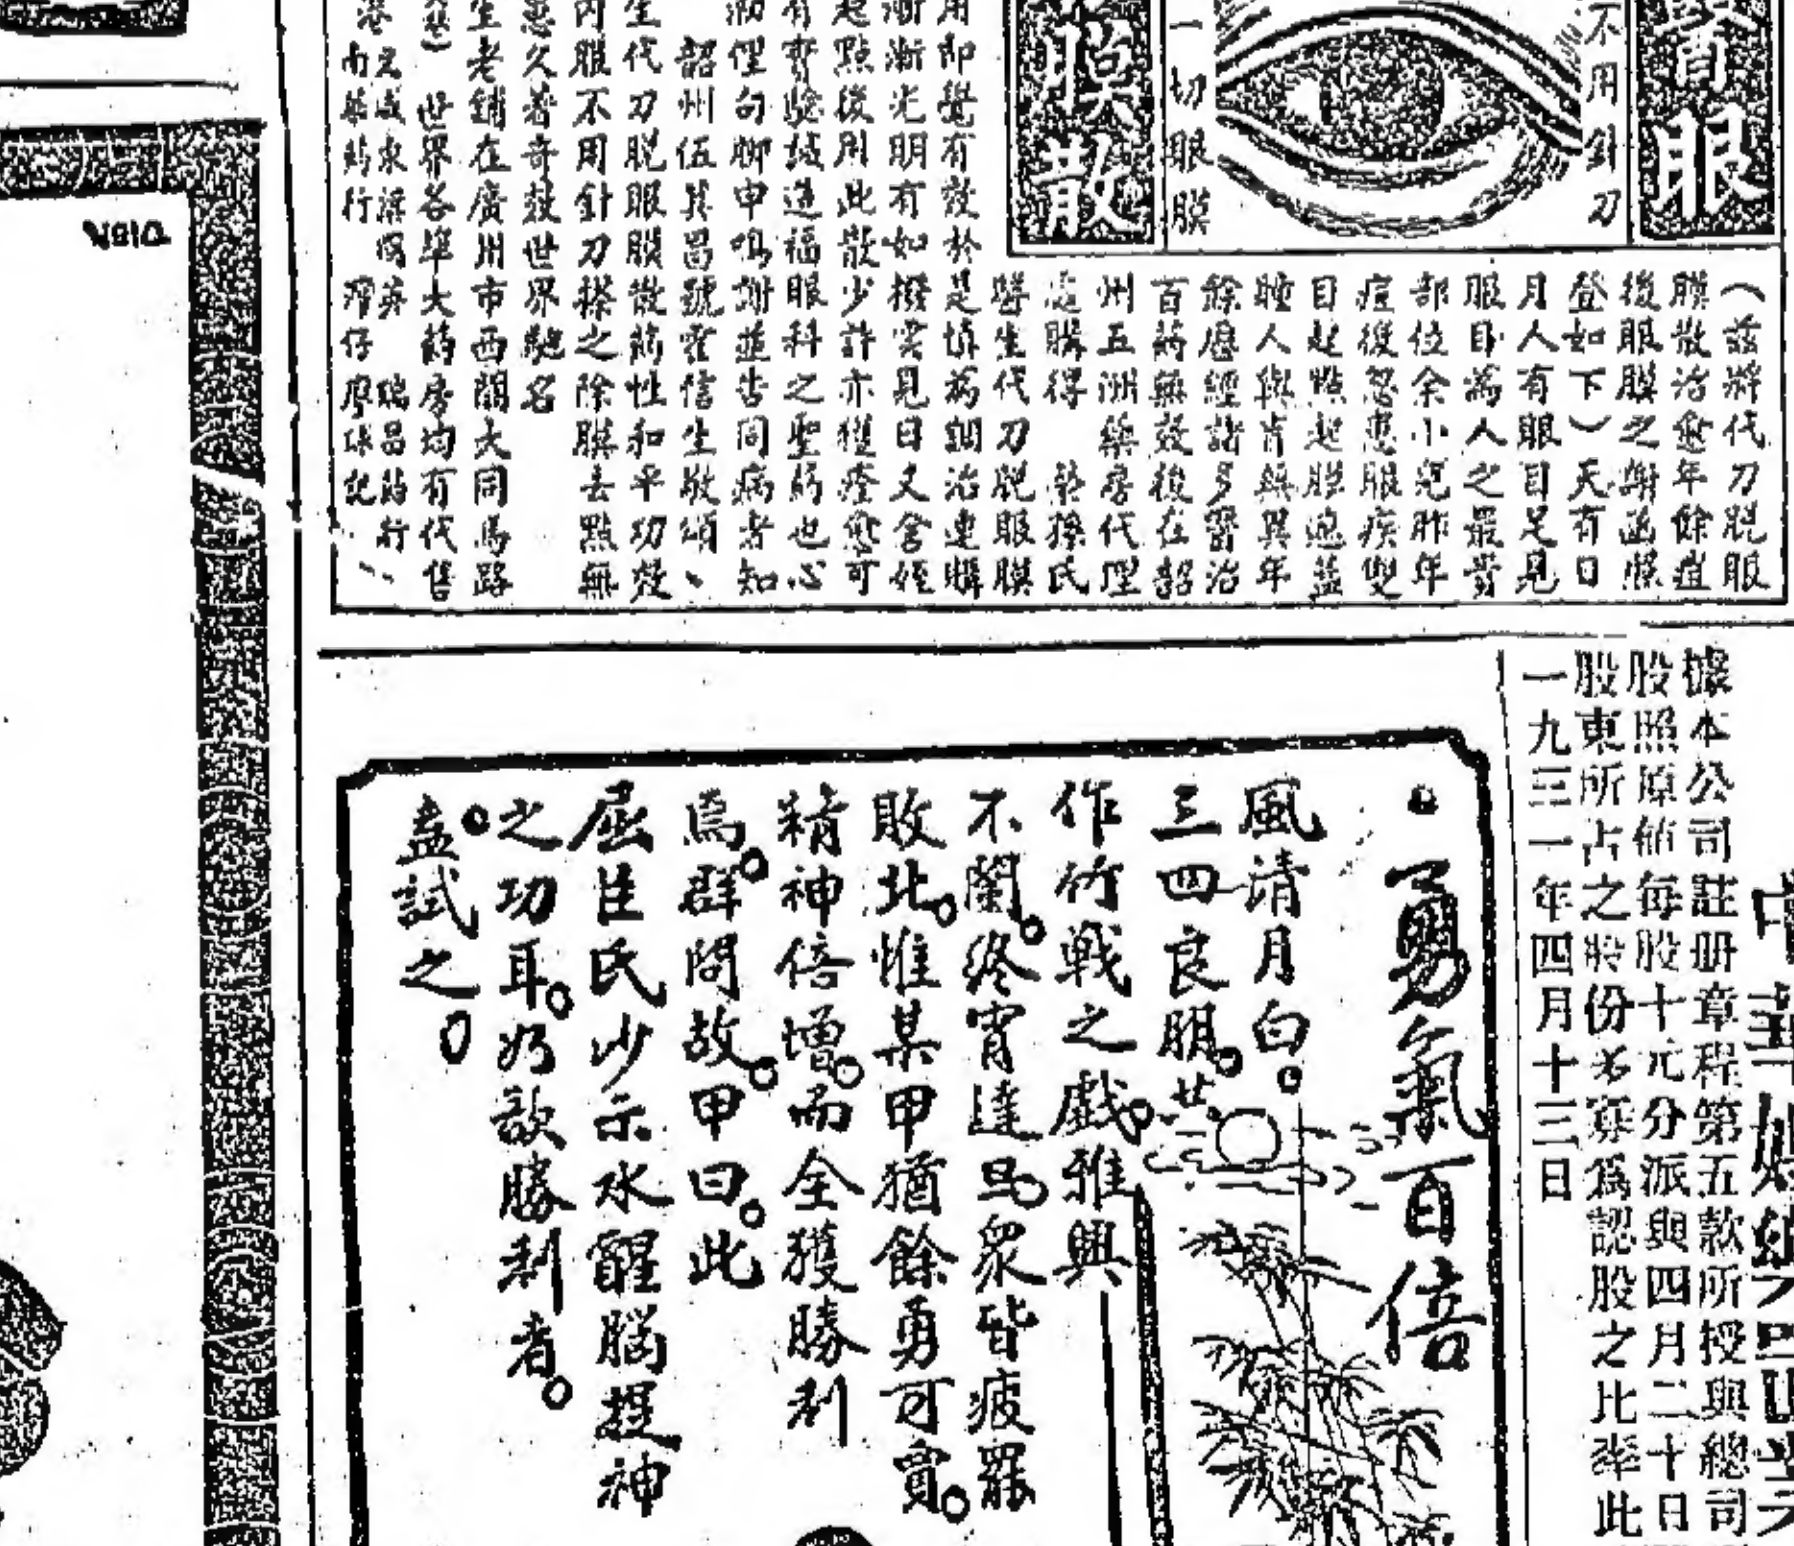 醫眼
不用針刀
一切眼膜
膜散
(茲將代刀脫眼
膜散治愈年餘痘
後眼膜之謝函照
登如下)天有日
月人有眼目足見
眼目為人之最貴
部位余小兒昨年
痘後忽患眼疾雙
目起點起膜遮蓋
瞳人與盲無異年
餘歷經諸多醫治
百葯無效後在韶
州五洲藥房代理
處購得 操氏
醫生代刀脫眼膜
用即覺有效於是慎為調治連購
漸漸光明有如撥雲見日又舍姪
起點後用此散少許亦獲痊愈可
有實驗誠造福眼科之聖葯也心
俚句聊申鳴謝並告同病者知
韶州伍其昌號霍信生敬頌
生代刀脫眼膜散葯性和平功效
內服不用針刀搽之除膜去點無
患久著奇效世界馳名
生老舖在廣州市西關大同馬路
世界各埠大葯房均有代售
據本公司註册章程第五款所授與總司
股照原値每股十元分派與四月二十日
股東所占之股份多寡爲認股之比率此
一九三一年四月十三日
勇氣百倍
風清月白。
三四良朋。共
作竹戰之戲。雅興
不闌。終宵達旦。衆皆疲罷
敗北。惟某甲猶餘勇可賈。
精神倍增。而全獲勝利
焉。群問故。甲曰。此
屈臣氏沙示水醒腦提神
之功耳。汝欲勝利者。
盍試之。